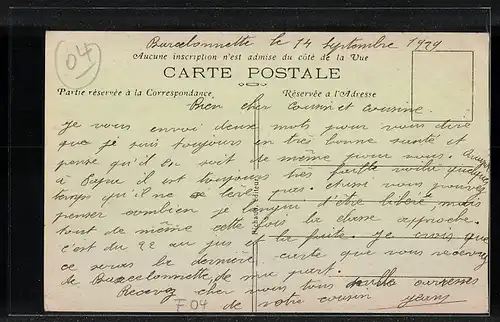 Barcelonnette le 14 Septembre 1929
04
Aucune inscription n'est admise du côté de la Vue
CARTE POSTALE
Partie réservée à la Correspondance
Réservée a l'Adresse
Bien cher Cousin et Cousine.
Je vous envoi deux mots pour vous dire
que je suis toujours en très bonne santé et
pense qu'il en soit de même pour vous.
à Papa il est toujours très faible voila quelque
temps qu'il ne se leve pas. vous pouvez
penser combien je d'être libéré mais
tout de même cette fois la classe approche.
c'est du 22 au jus et la fuite. Je crois que
ce seras la dernière carte que vous recevrez
de Barcelonnette, de ma part.
Recevez cher vous tous mille caresses
de votre cousin Jean
F04